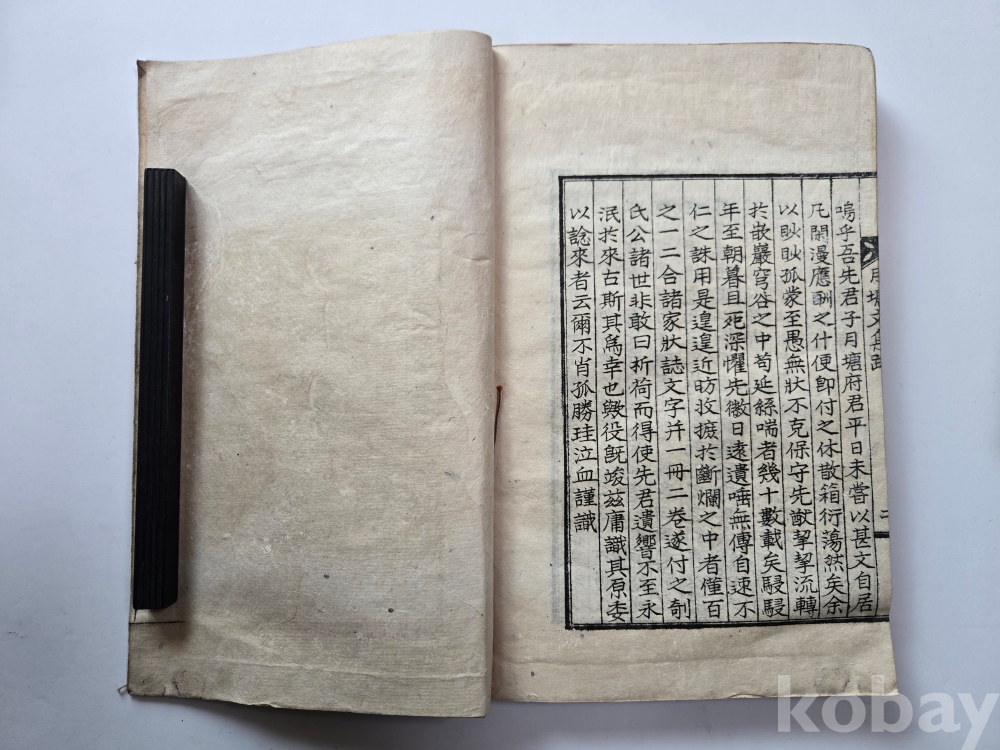 月塘文集跋
二
嗚乎吾先君子月塘府君平日未嘗以甚文自居
凡閑漫應酬之什便卽付之休散箱衍蕩然矣余
以眇眇孤蒙至愚無狀不克保守先猷挈挈流轉
於嵌巖穹谷之中苟延絲喘者幾十數載矣駸駸
年至朝暮且死深懼先徽日遠遺唾無傳自速不
仁之誅用是遑遑近昉收摭於斷爛之中者僅百
之一二合諸家狀誌文字并一冊二卷遂付之剞
氏公諸世非敢曰析荷而得使先君遺響不至永
泯於來古斯其爲幸也歟役旣竣玆庸識其原委
以諗來者云爾不肖孤勝珪泣血謹識
kobay